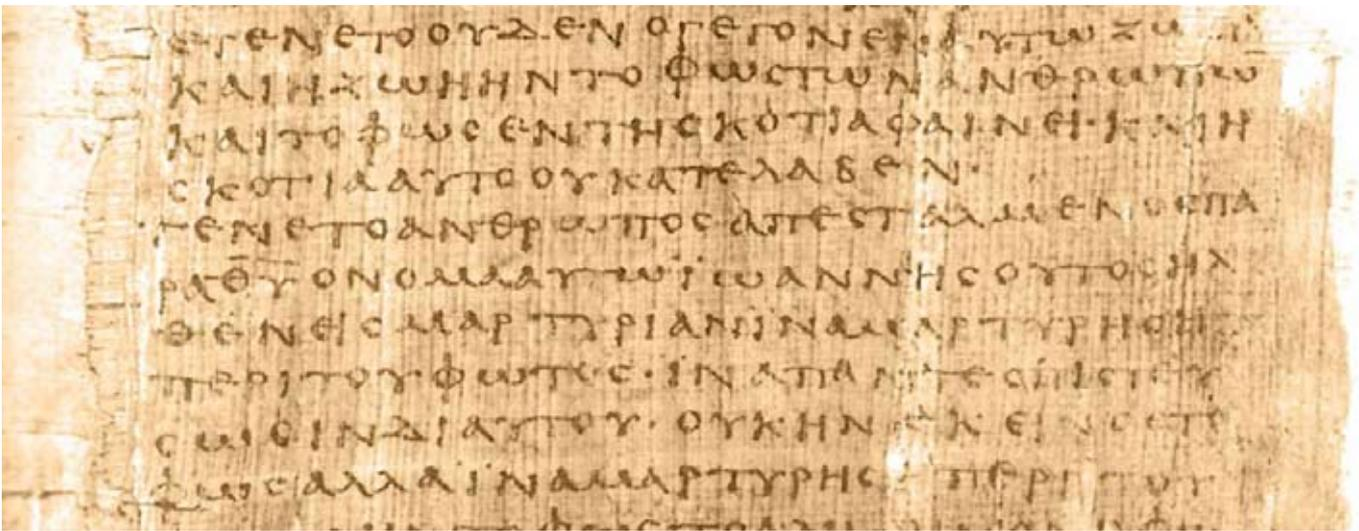 ΕΓΕΝΕΤΟΟΥΔΕΝΟΓΕΓΟΝΕΝΑΥΤΩΖΩ
ΚΑΙΗΖΩΗΗΝΤΟΦΩϹΤΩΝΑΝΘΡΩΠΩ̅
ΚΑΙΤΟΦΩϹΕΝΤΗϹΚΟΤΙΑΦΑΙΝΕΙ·ΚΑΙΗ
ϹΚΟΤΙΑΑΥΤΟΟΥΚΑΤΕΛΑΒΕΝ·
ΓΕΝΕΤΟΑΝΘΡΩΠΟϹΑΠΕϹΤΑΛΜΕΝΟϹΠΑ
ΡΑΘ̅Υ̅ΟΝΟΜΑΑΥΤΩΪΩΑΝΝΗϹΟΥΤΟϹΗΛ
ΘΕΝΕΙϹΜΑΡΤΥΡΙΑΝΪΝΑΜΑΡΤΥΡΗϹΗ
ΠΕΡΙΤΟΥΦΩΤΟϹ·ΪΝΑΠΑΝΤΕϹΠΙϹΤΕΥ
ϹΩϹΙΝΔΙΑΥΤΟΥ·ΟΥΚΗΝΕΚΕΙΝΟϹΤΟ
ΦΩϹΑΛΛΑΪΝΑΜΑΡΤΥΡΗϹΗΠΕΡΙΤΟΥ